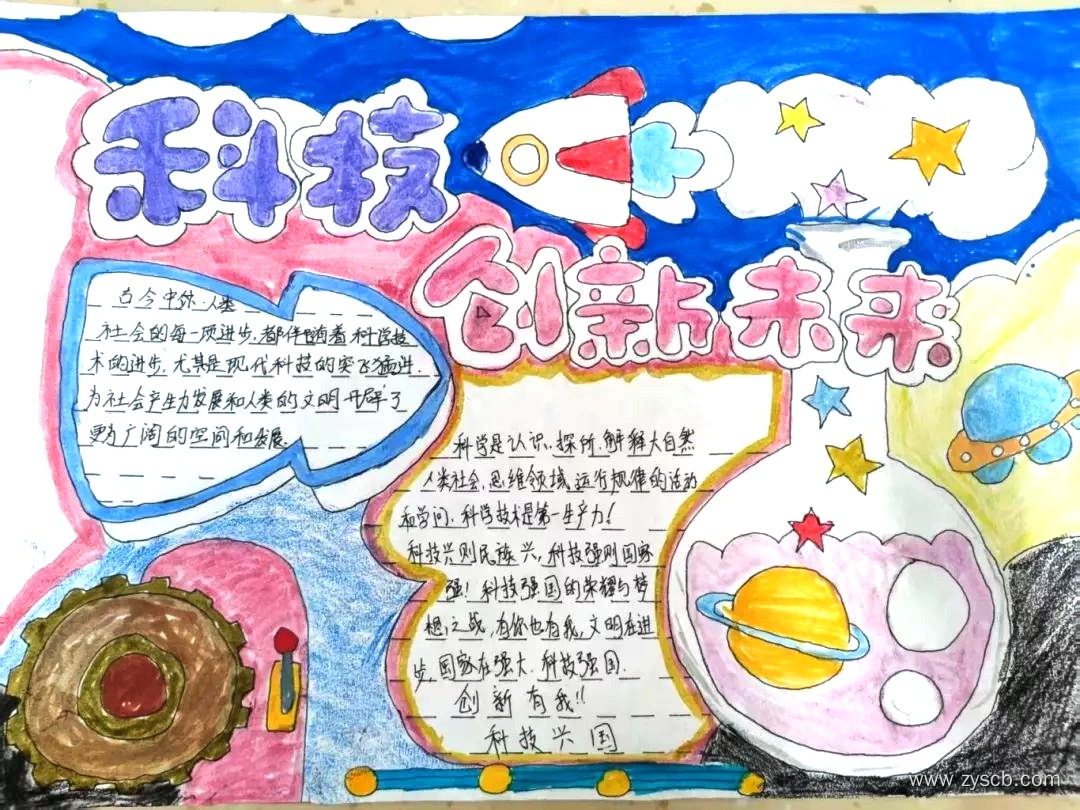 科技
创新未来
古今中外,人类
社会的每一项进步,都伴随着科学技
术的进步.尤其是现代科技的突飞猛进,
为社会产生力发展和人类的文明开辟了
更为广阔的空间和发展.
科学是认识、探所、解释大自然
人类社会,思维领域运行规律的活动
和学问.科学技术是第一生产力!
科技兴则民族兴,科技强则国家
强!科技强国的荣耀与梦
想,之战,有你也有我,文明在进
步,国家在强大,科技强国.
创新有我!!
科技兴国
www.zyscb.com